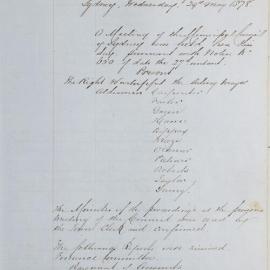 Sydney, Wednesday, 29th May 1878
A Meeting of the Municipal Council
of Sydney was held this
day pursuant with Notice No
350 of date the 27th instant.
Present
The Right Worshipful the Mayor
Aldermen
Butler
Green
Kippax
O'Connor
Palmer
Roberts
Taylor
The Minutes of the proceedings at the previous
Meeting of the Council were read by
the Town Clerk and confirmed.
The following Reports was received
Finance Committee
Payment of Accounts